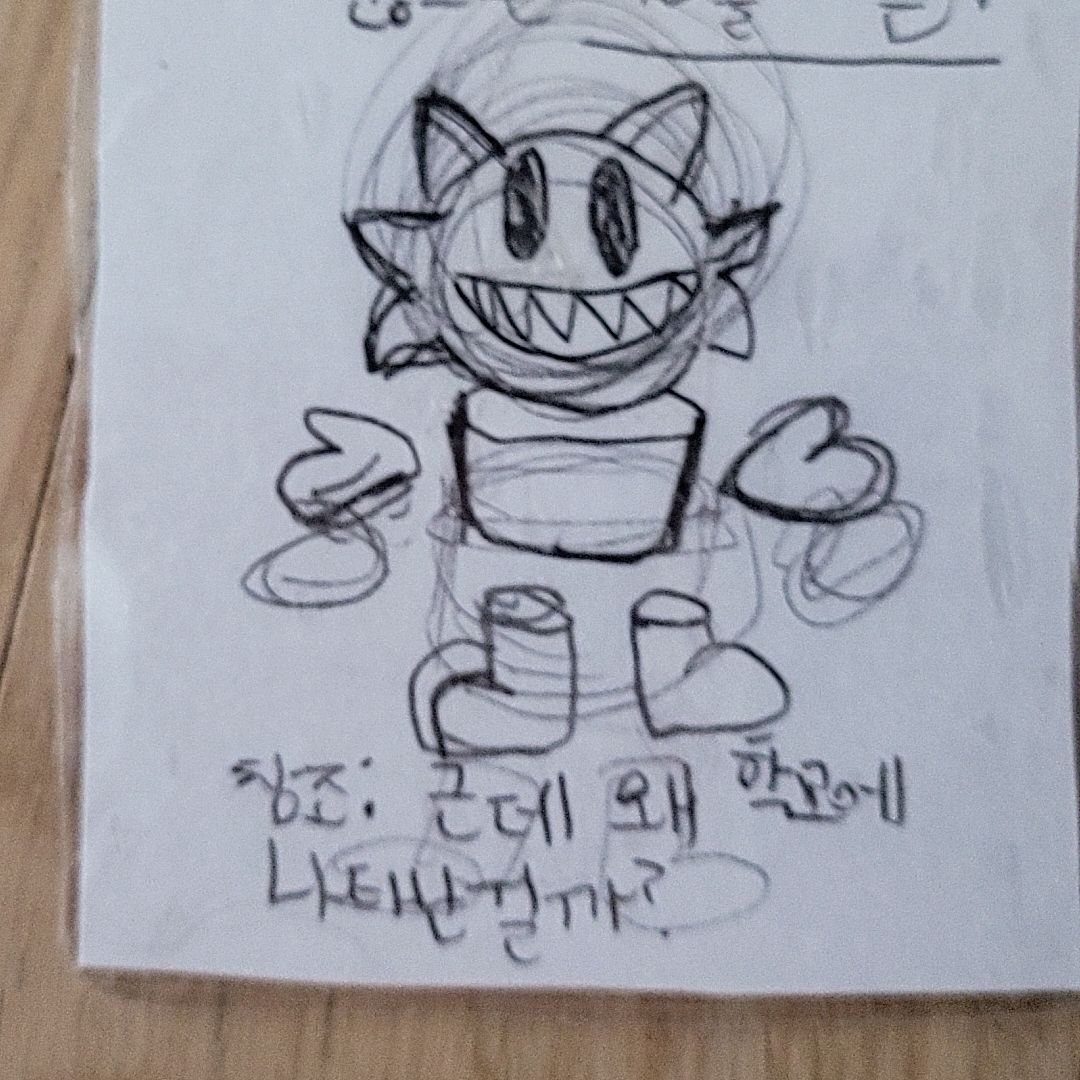 창조: 근데 왜 학교에
나타난걸까?